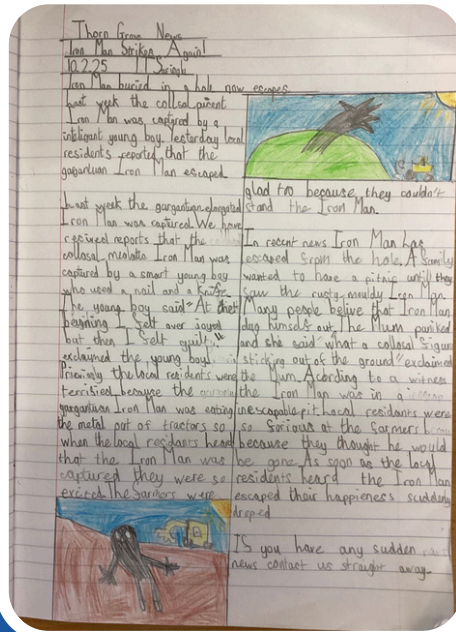 Thorn Grove News
Iron Man Strikes Again!
10.2.25
Iron Man buried in a hole now escapes
Last week the
Iron Man was captured by a
inteligant young boy. Yesterday local
residents reported that the
gagantuan Iron Man escaped
In last week the gargantuan elongated
Iron Man was captured. We have
recived reports that the
colosal Iron Man was
captured by a smart young boy
who used a nail and a knife
The young boy said "At the
begining I felt over joyed
but then I felt guilty"
exclaimed the young boy.
the local residents were
terrified because the
gargantuan Iron Man was eating
the metal part of tractors so
when the local residants heard
that the Iron Man was
captured they were so
excited. The farmers were
glad too because they couldn't
stand the Iron Man.
In recent news Iron Man has
escaped from the hole. A family
wanted to have a picnic until they
saw the rusty, mouldy Iron Man.
Many people belive that Iron Man
dug himself out. The Mum paniked
and she said "what a colossal figure
sticking out of the ground" exclaimed
the Mum. Acording to a witness
the Iron Man was in a
unescapable pit. Local residants were
so furious at the farmers
because they thought he would
be gone. As soon as the local
residents heard the Iron Man
escaped their happieness suddenly
droped
If you have any sudden
news contact us straight away.